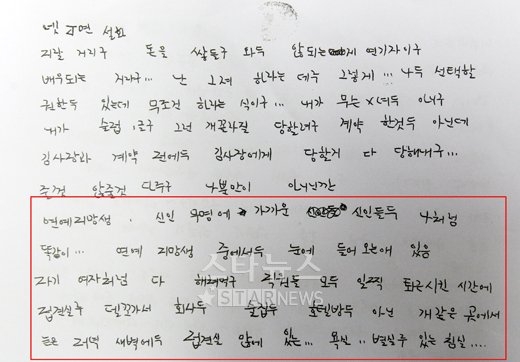 넷 연 설화
지랄 거지구 돈을 쌓들구 와두 않되는 연기자이구
배우되는 거라구... 난 그저 하라는 데루 그렇게... 나두 선택할
권한두 있는데 무조건 하라는 식이구... 내가 무슨 X녀두 아니구
내가 술접 구 그런 개꼬라질 당할려구 계약 한것두 아닌데
김사장과 계약 전에두 김사장에게 당할거 다 당해대구...
줄것 않줄것 다주구 나뿐만이 아니닌깐
연예지망생. 신인 무명에 가까운 신인들두 나처럼
똑같이... 연예 지망생 중에서두 눈에 들어오는애 있음
자기 여자처럼 다 해쳐먹구 직원들 모두 일찍 퇴근시킨 시간에
접견실루 델꼬가서 회사두 술접두 호텔방두 아닌 개같은 곳에서
늦은 저녁 새벽에두 접견실 앞에 있는... 욕신.. 별실루 있는 침실....
스타뉴스
STARNEWS